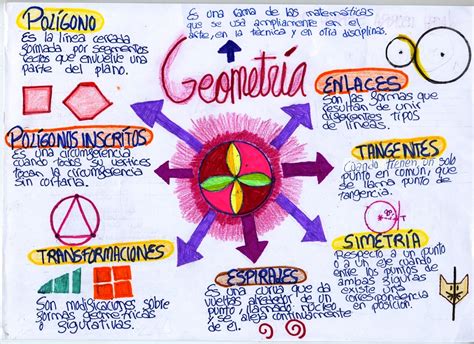 POLÍGONO
Es la línea cerrada
formada por segmentos
rectos que envuelve una
parte del plano.
Es una rama de las matemáticas
que se usa ampliamente en el
arte, en la técnica y en otra disciplinas.
Geometría
ENLACES
Son las formas que
resultan de unir
diferentes tipos
de líneas.
POLÍGONOS INSCRITOS
Es una circunferencia
cuando toda su vertices
tocan la circunferencia
sin cortarla.
TANGENTES
Cuando tienen un solo
punto en común, que
se llama punto de
tangencia.
T
TRANSFORMACIONES
Son modificaciones sobre
formas geometricas
o figurativas.
ESPIRALES
Es una curva que da
vueltas alrededor de un
punto, llamado núcleo
y se aleja continuamente
de él.
SIMETRÍA
Respecto a un punto
o a un eje cuando
entre los puntos de
ambas figuras
existe una
correspondencia
en posicion.